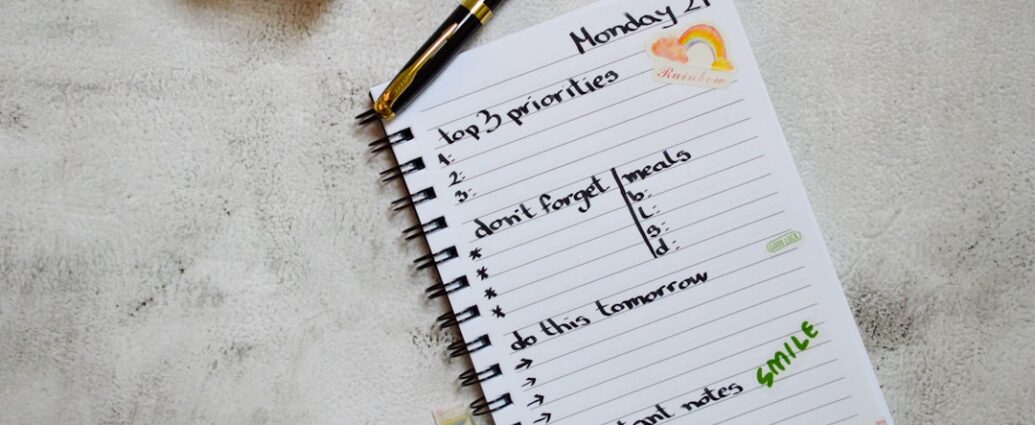 Monday 21
Rainbow
top 3 priorities
1:
2:
3:
don't forget
*
*
*
*
meals
b:
L:
s:
d:
GOOD LUCK
do this tomorrow
→
→
→
→
SMILE
notes